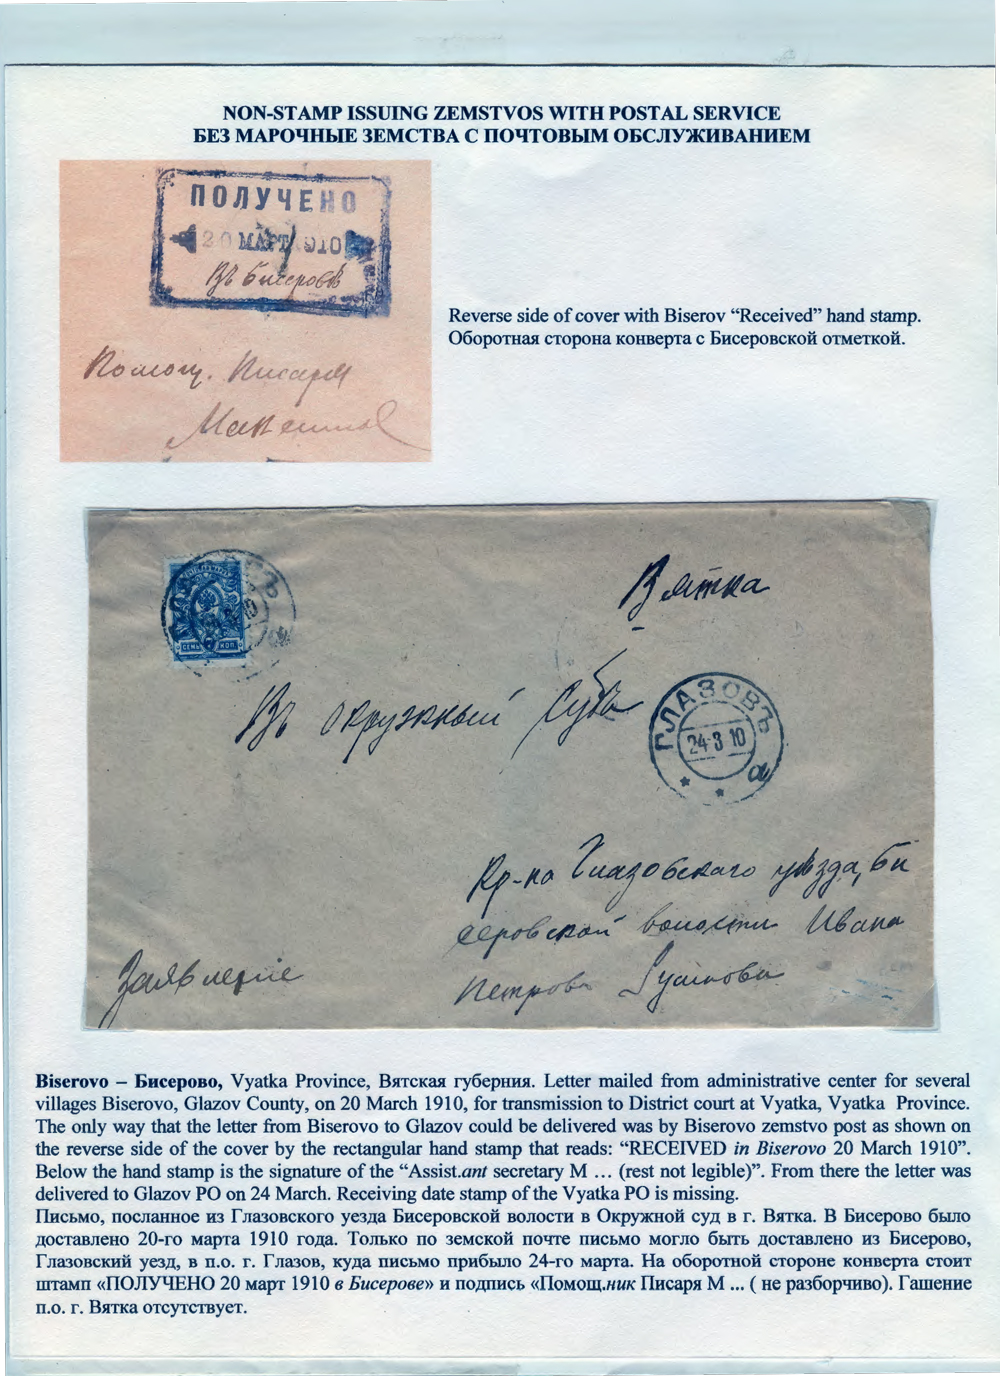 NON-STAMP ISSUING ZEMSTVOS WITH POSTAL SERVICE
БЕЗ МАРОЧНЫЕ ЗЕМСТВА С ПОЧТОВЫМ ОБСЛУЖИВАНИЕМ
ПОЛУЧЕНО
20 МАРТ 1910
Въ Бисеровѣ
Помощ. Писаря
Reverse side of cover with Biserov “Received” hand stamp.
Оборотная сторона конверта с Бисеровской отметкой.
СЕМЬ КОП
Вятка
Въ окружный Судъ
ГЛАЗОВЪ
24·3 10
а
Кр-на Глазовскаго уѣзда, Би
серовской волости Ивана
Петрова
Заявление
Biserovo – Бисерово, Vyatka Province, Вятская губерния. Letter mailed from administrative center for several
villages Biserovo, Glazov County, on 20 March 1910, for transmission to District court at Vyatka, Vyatka Province.
The only way that the letter from Biserovo to Glazov could be delivered was by Biserovo zemstvo post as shown on
the reverse side of the cover by the rectangular hand stamp that reads: “RECEIVED in Biserovo 20 March 1910”.
Below the hand stamp is the signature of the “Assist.ant secretary M … (rest not legible)”. From there the letter was
delivered to Glazov PO on 24 March. Receiving date stamp of the Vyatka PO is missing.
Письмо, посланное из Глазовского уезда Бисеровской волости в Окружной суд в г. Вятка. В Бисерово было
доставлено 20-го марта 1910 года. Только по земской почте письмо могло быть доставлено из Бисерово,
Глазовский уезд, в п.о. г. Глазов, куда письмо прибыло 24-го марта. На оборотной стороне конверта стоит
штамп «ПОЛУЧЕНО 20 март 1910 в Бисерове» и подпись «Помощ.ник Писаря М ... ( не разборчиво). Гашение
п.о. г. Вятка отсутствует.